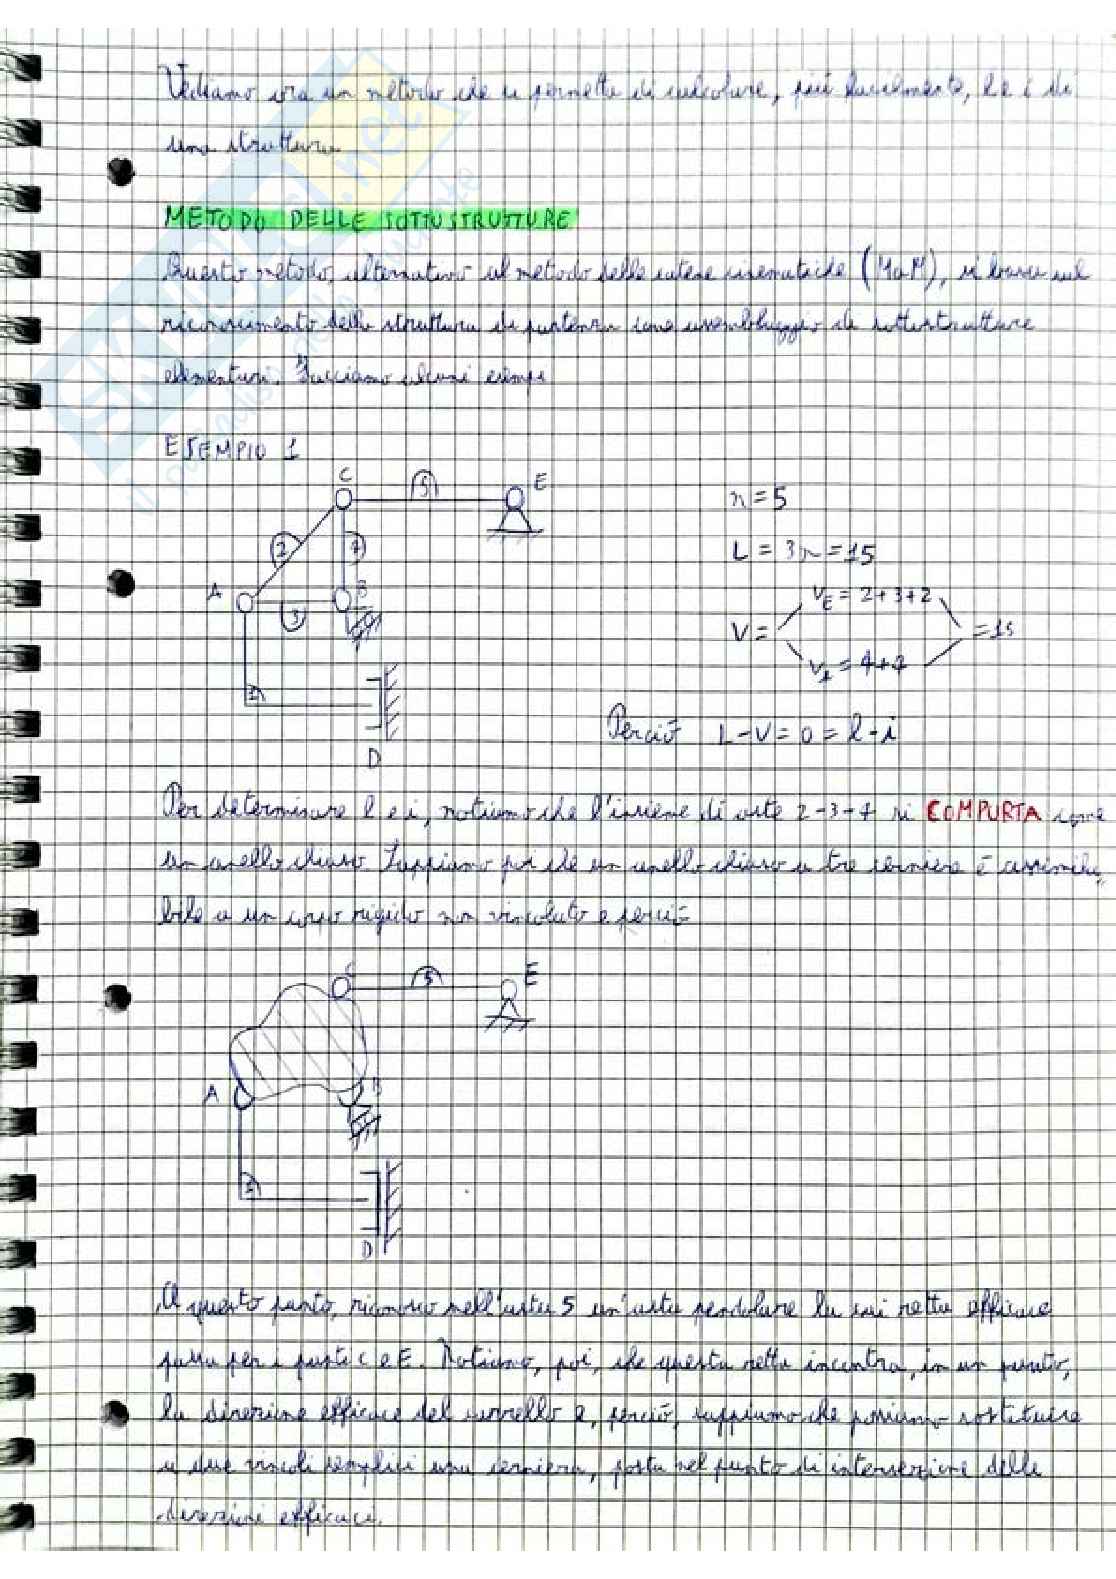 Vediamo ora un metodo che ci permetta di calcolare, più facilmente, l e i di
una struttura
METODO DELLE SOTTOSTRUTTURE
Questo metodo, alternativo al metodo delle catene cinematiche (MaM), si basa sul
riconoscimento della struttura di partenza come assemblaggio di sottostrutture
elementari. Facciamo alcuni esempi
ESEMPIO 1
C 5 E
2 4
A B
3
1
D
n = 5
L = 3n = 15
V_E = 2+3+2
V = = 15
V_I = 4+4
Perciò L-V = 0 = l-i
Per determinare l e i, notiamo che l'insieme di aste 2-3-4 si COMPORTA come
un anello chiuso. Sappiamo poi che un anello chiuso a tre cerniere è assimila
bile a un corpo rigido non vincolato e perciò
C 5 E
A B
1
D
A questo punto, riconosco nell'asta 5 un'asta pendolare la cui retta efficace
passa per i punti C e E. Notiamo, poi, che questa retta incontra, in un punto,
la direzione efficace del carrello e, perciò, sappiamo che possiamo sostituire
a due vincoli semplici una cerniera, posta nel punto di intersezione delle
direzioni efficaci.
SKUOLA.net
il paradiso dello studente